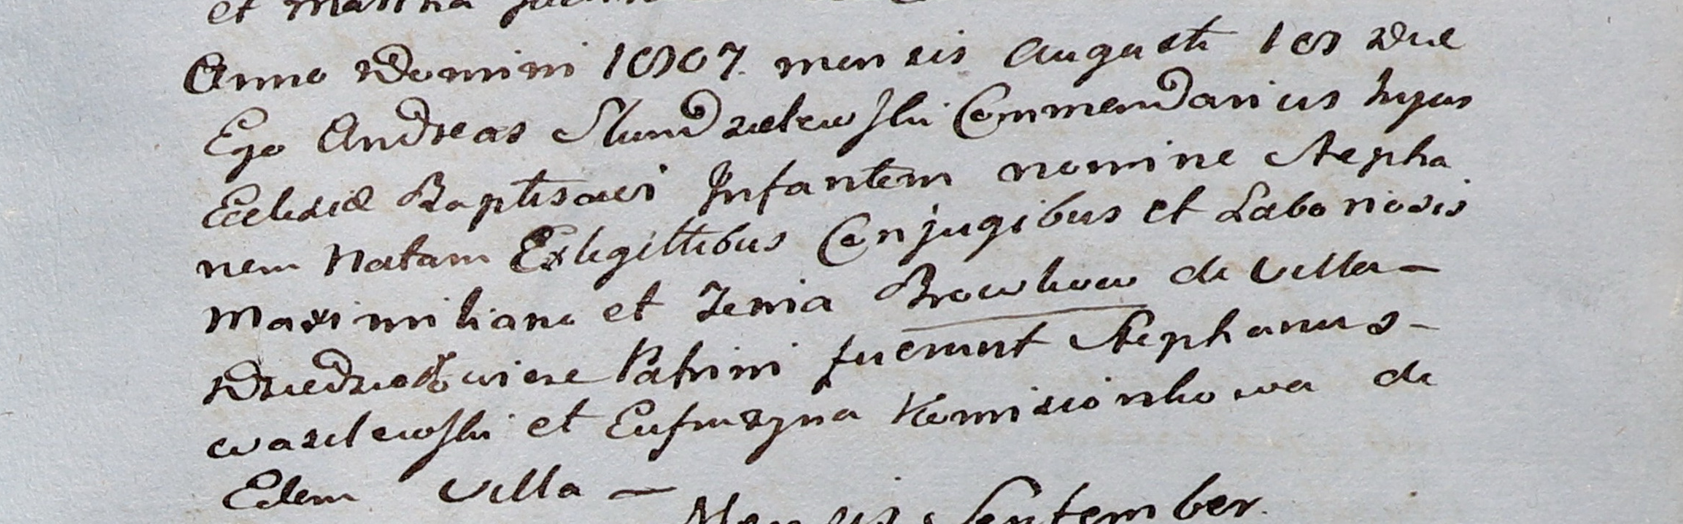 et Martha
Anno Domini 1807 mensis Augusti 18 Die
Ego Andreas Commendarius hujus
Eclesiæ Baptisavi Infantem nomine Stepha
nem Natam Ex legittibus Conjugibus et Laboriosis
Maximiliano et Xenia Browkow de Villa —
Patrini fuerunt Stephanus —
wasilewski et Eufruzyna de
Edem Villa —
Mensis September